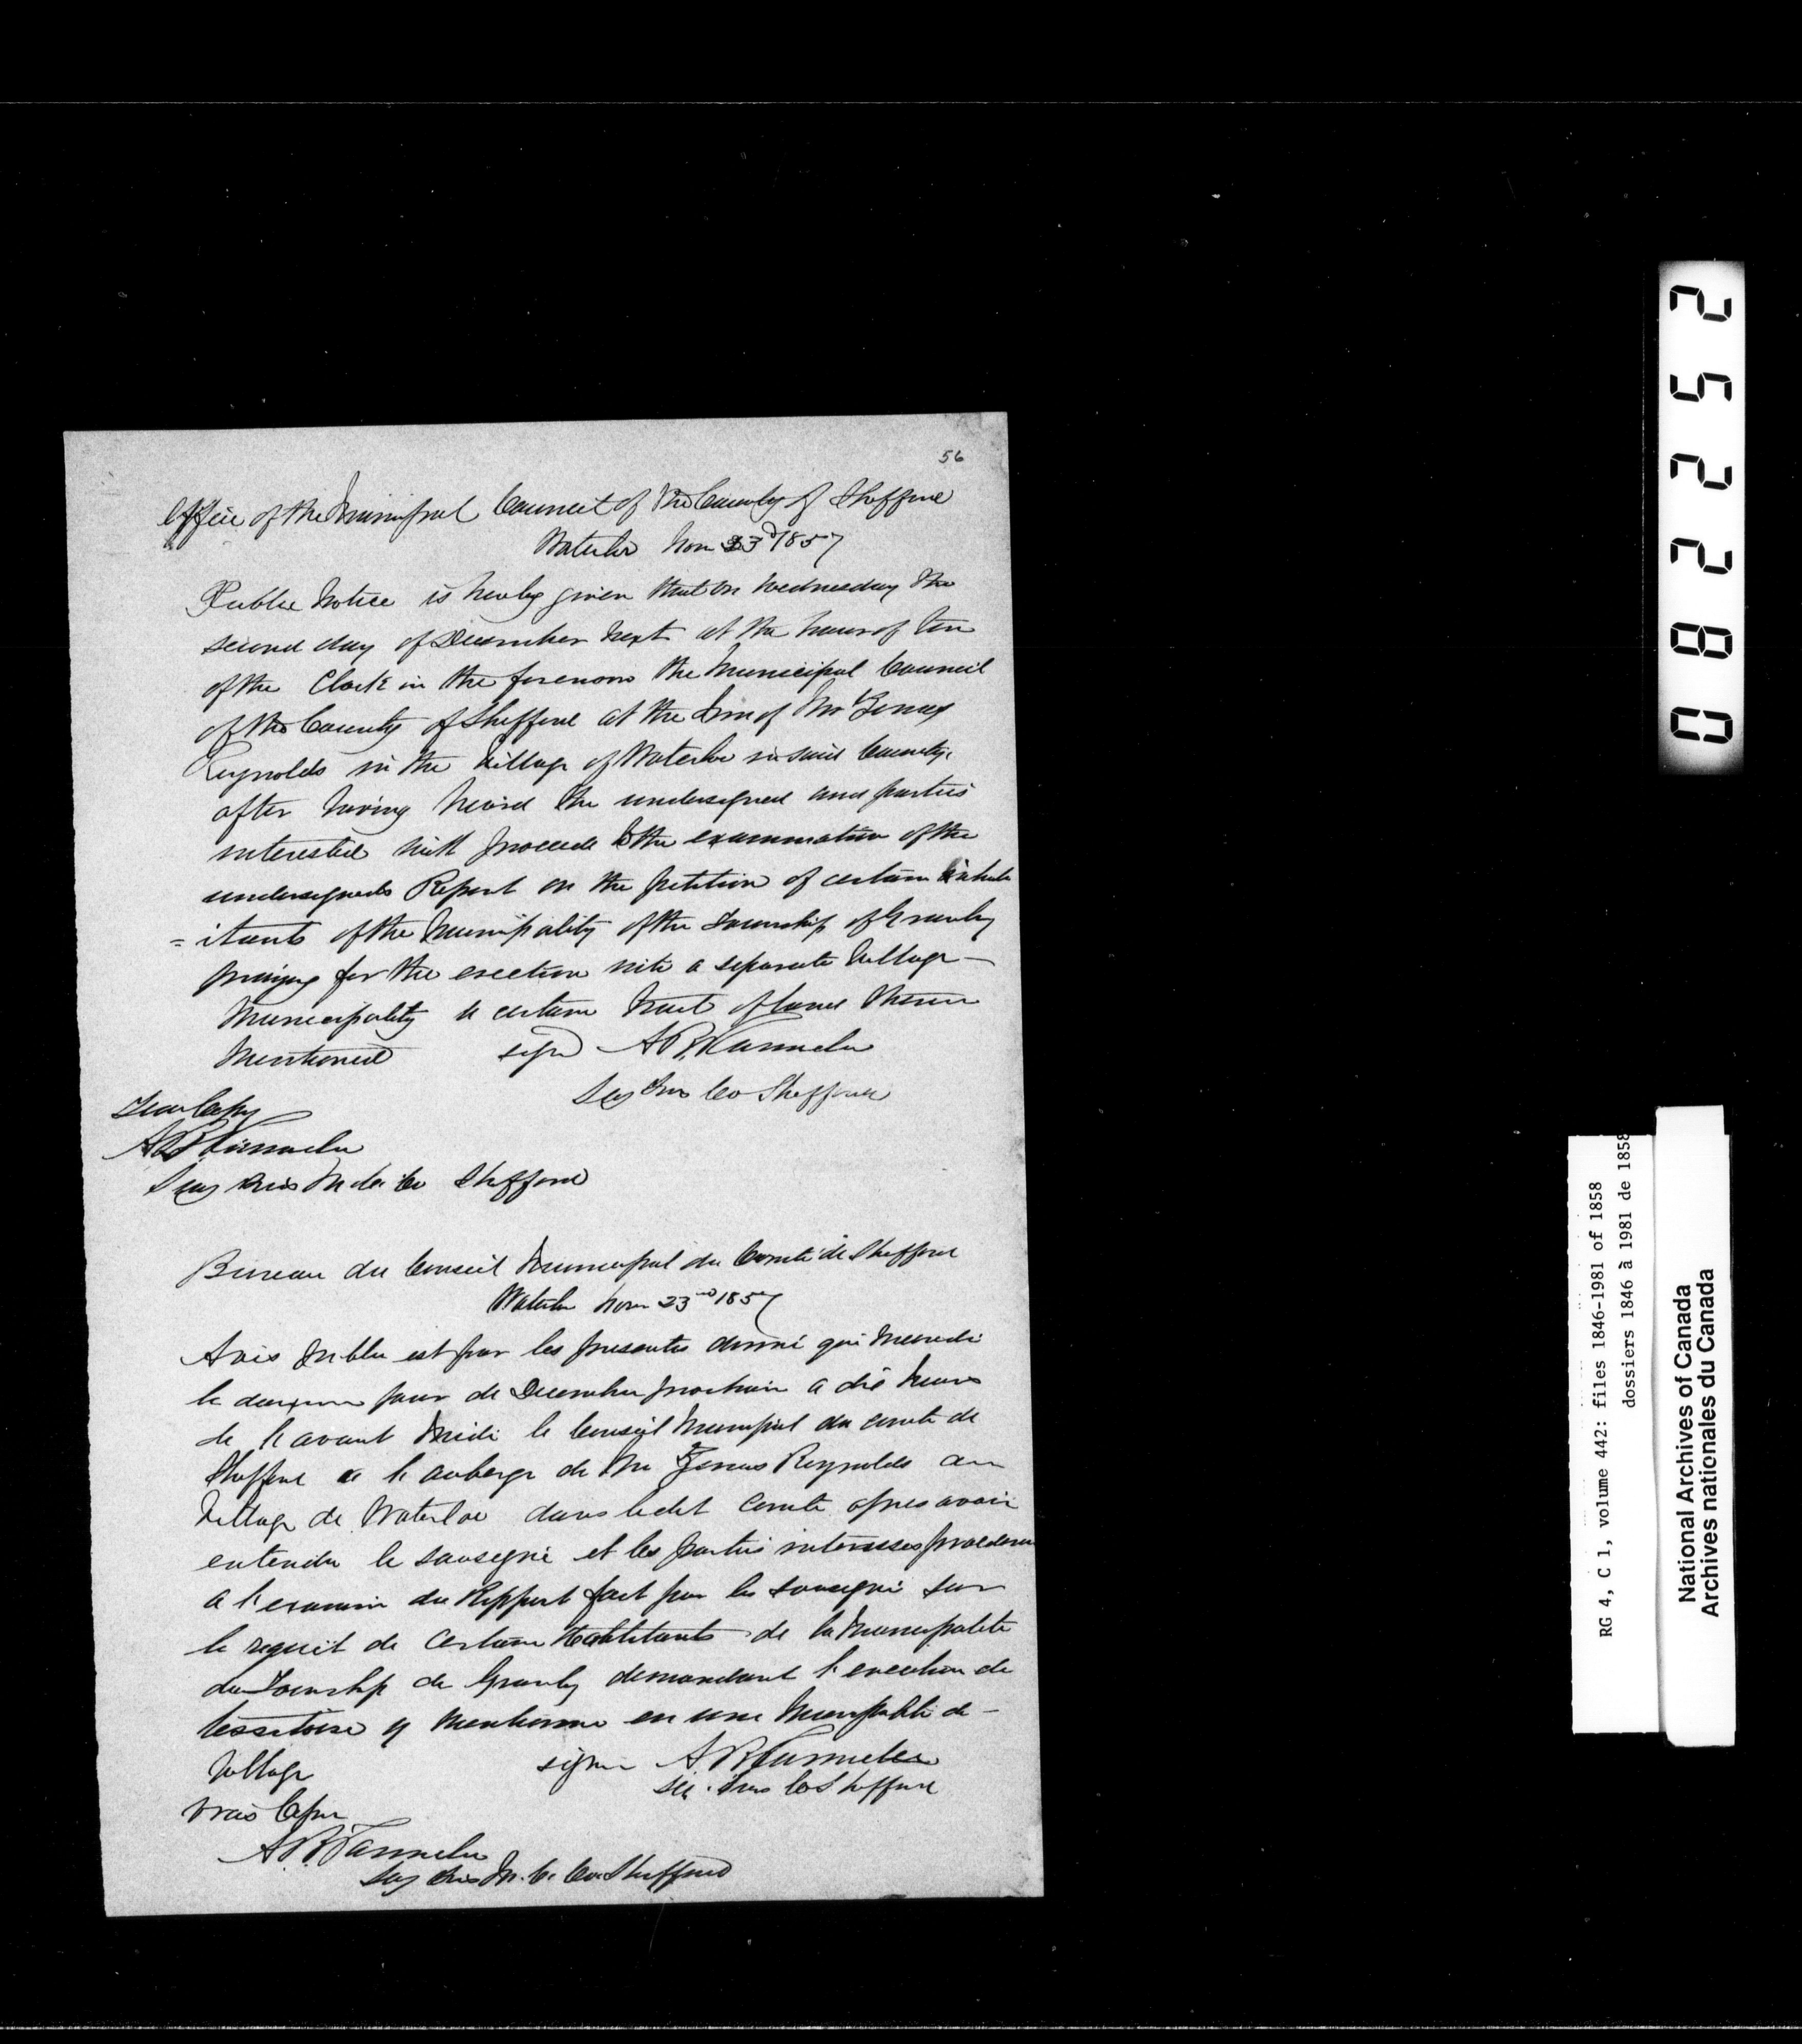 56
Office of the Municipal Council of the County of Shefford
Waterloo Nov 23d 1857
Public Notice is hereby given that on Wednesday the
second day of December next at the hour of ten
of the Clock in the forenoon the Municipal Council
of the County of Shefford at the Inn of Mr
Reynolds in the Village of Waterloo in said County,
after having heard the undersigned and parties
interested will procede to the examination of the
undersigneds Report on the petition of certain inhab
=itants of the Municipality of the Township of Granby
praying for the erection into a separate Village -
Municipality a certain tract of land therein
Mentioned sigd A R
Secy Tres Co Shefford
True Copy
A R
Secy Tres M Co Shefford
Bureau du Conseil Municipal du Comté de Shefford
Waterloo Nov 23rd 1857
Avis Public est par les presentes donné que Mercredi
le jour de December prochain a dix heures
de l'avant Midi le Conseil Municipal du comté de
Shefford a l'auberge de Mr Reynolds au
Village de Waterloo dans ledit Comté apres avoir
entendu le sousigné et les parties interesses procedera
a l'examin du Rapport fait par le sousigné sur
le requêt de certain Habitants de la Municipalite
du Township de Granby demandant l'erection de
territoire y mentionné en une Municipalité de -
Village signé A R
Sec. Tres Co Shefford
Vrais Copie
A. R
Secy Tres M. C. Co. Shefford
082252
RG 4, C 1, volume 442: files 1846-1981 of 1858
dossiers 1846 à 1981 de 1858
National Archives of Canada
Archives nationales du Canada